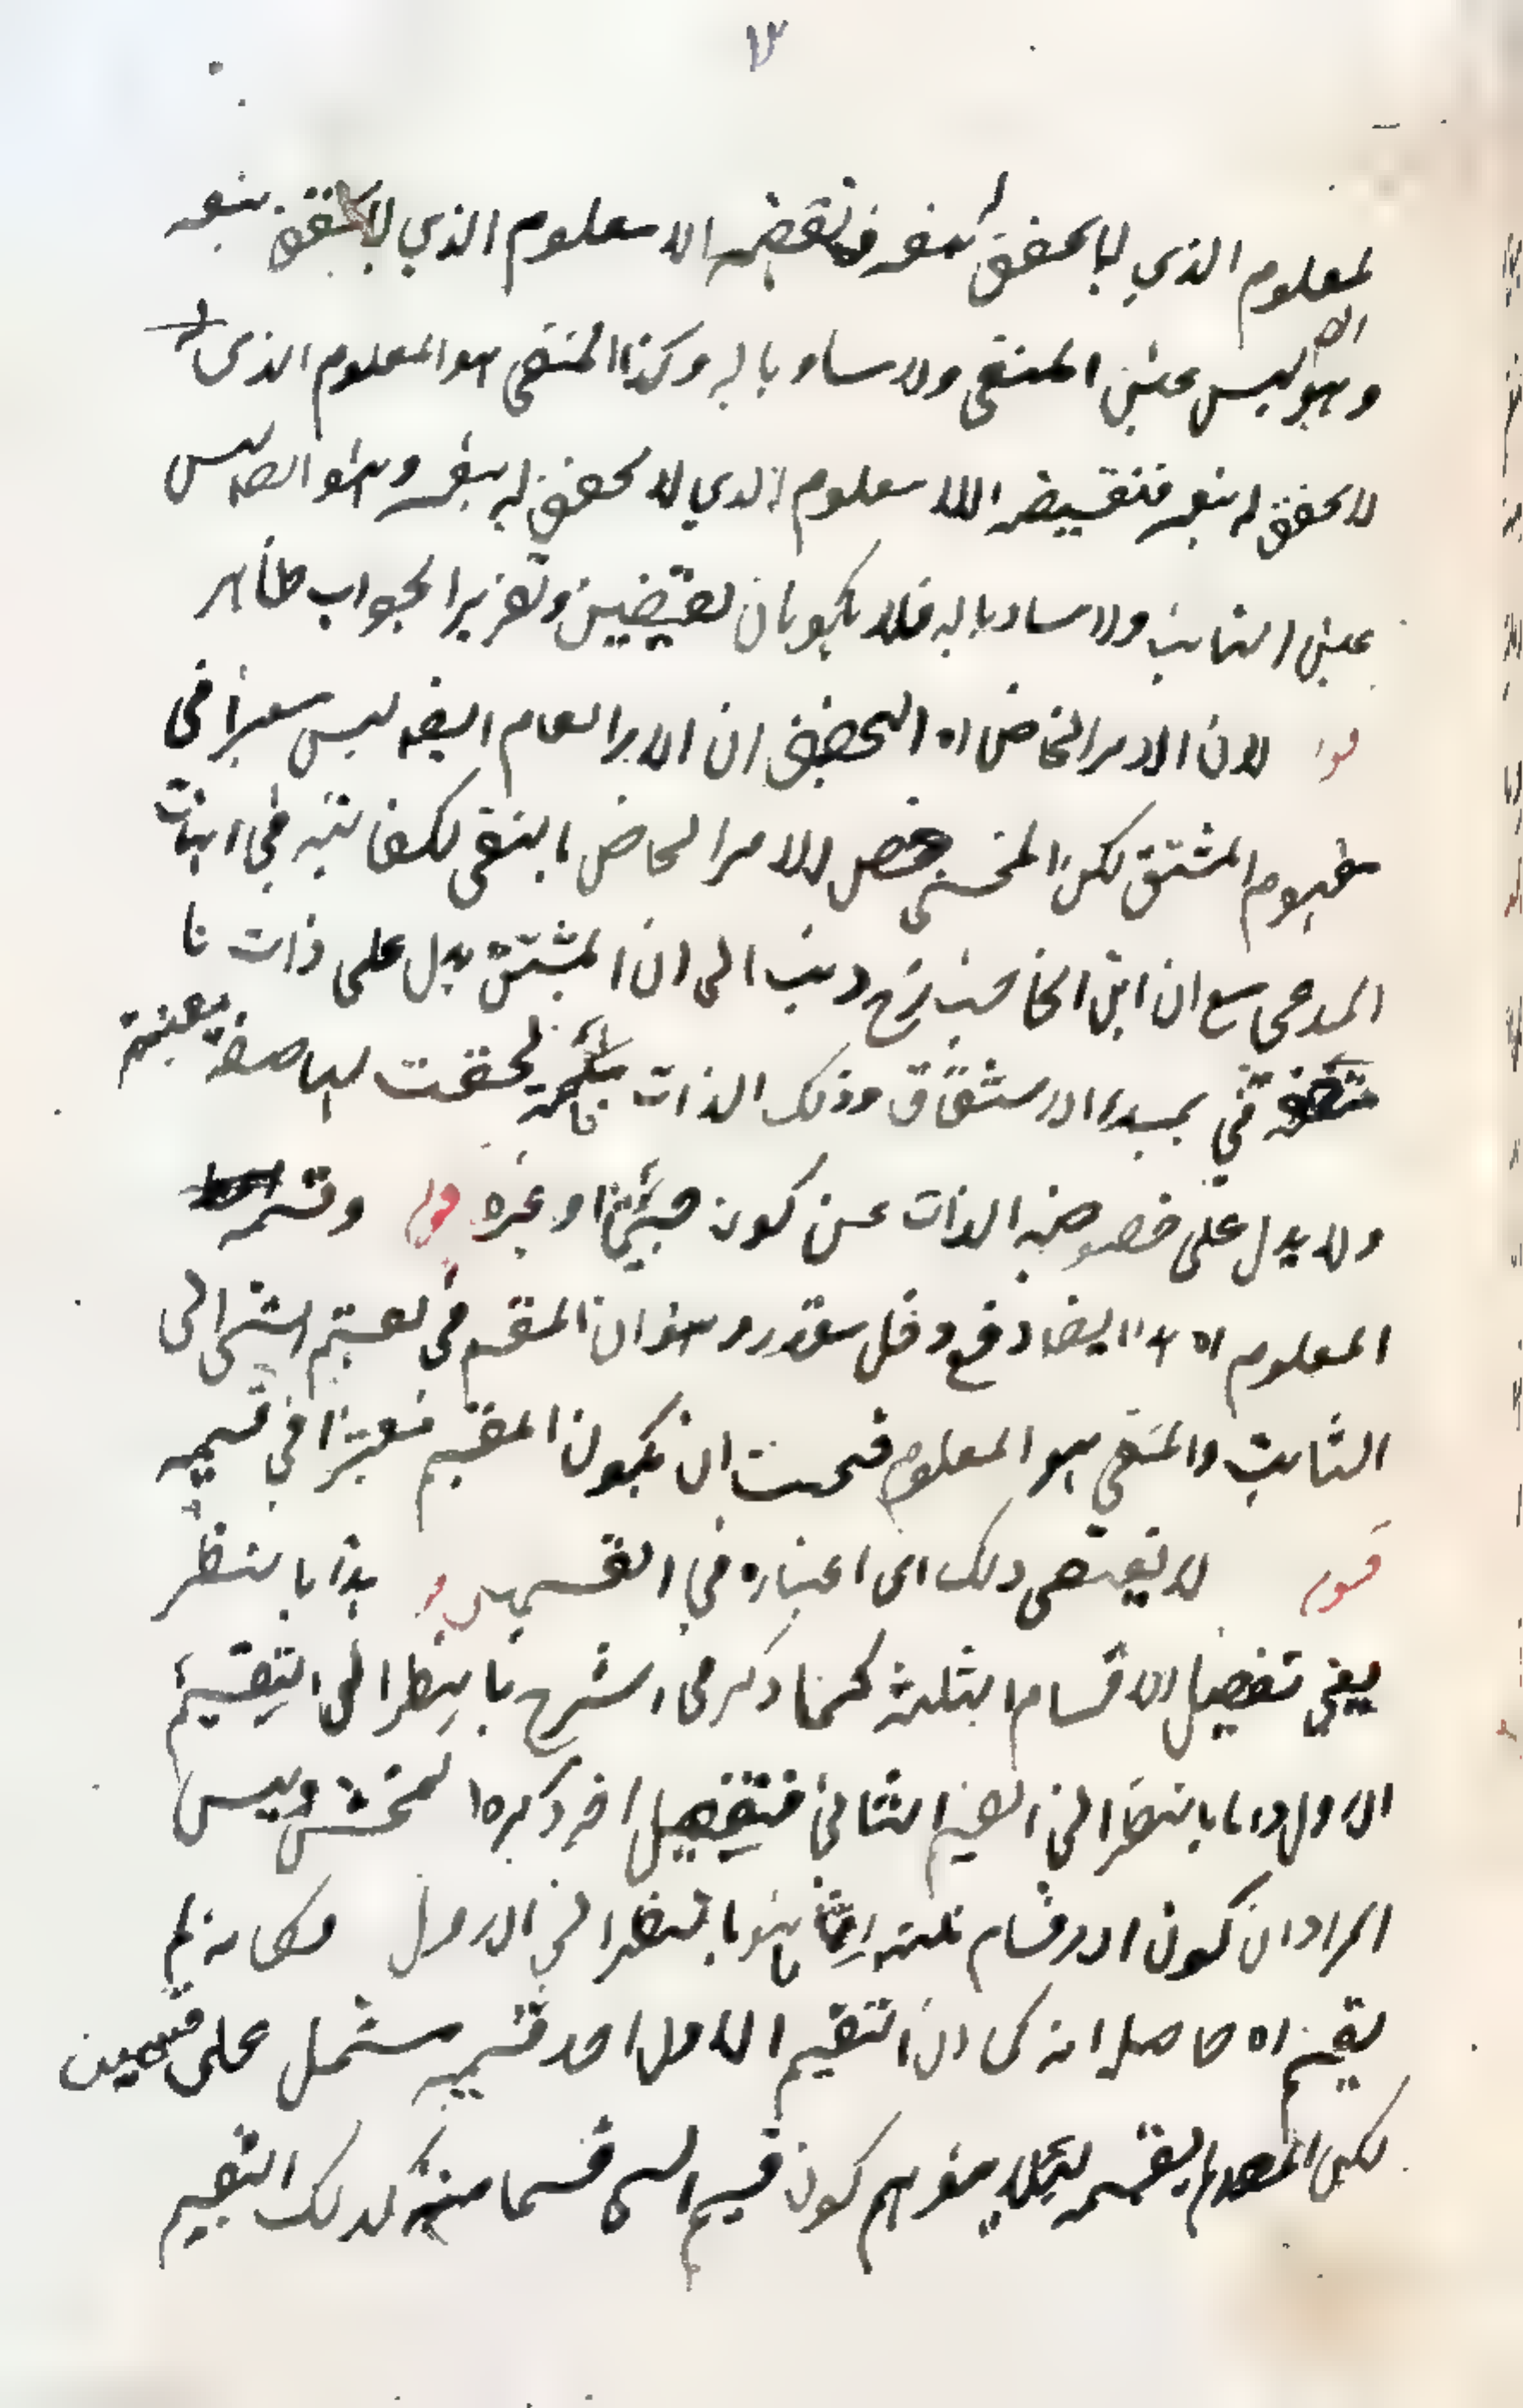 ٧
لمعلوم الذي لا تحقق له بنفسه فنقيضه اللا معلوم الذي لا تحقق بنفسه
وهو ليس عين المنفي ولا مساويا له وكذا المنفي هو المعلوم الذي
لا تحقق له بنفسه فنقيضه اللا معلوم الذي لا تحقق له بنفسه وهو ايضا ليس
عين الثابت ولا مساويا له فلا يكونان نقيضين وتقرير الجواب ظاهر
قوله لان الامر الخاص اه التحقيق ان الامر العام ايضا ليس معتبرا في
مفهوم المشتق لكن المحشي خص الامر الخاص بالنفي لكفايته في اثبات
المدعى مع ان ابن الحاجب ذهب الى ان المشتق يدل على ذات ما
بمبدأ الاشتقاق وذلك الذات لحقت لها صفة معينة
ولا يدل على خصوصية الذات من كون جسما او غيره قوله وقسمه
المعلوم اه ايضا دفع دخل مقدر وهو ان المقسم في تقسيم الشيء الى
الثابت والمنفي هو المعلوم فيجب ان يكون المقسم معتبرا في قسيمه
قوله لا يقتضي ذلك اي اعتباره في القسمين قوله هذا بالنظر
يعني تفصيل الاقسام الثلثة كما ذكر في الشرح بالنظر الى التقسيم
الاول واما بالنظر الى التقسيم الثاني فتفصيل اخر ذكره المحشي وليس
المراد ان كون الاقسام ثلثة بالنظر الى الاول فكانه لم
يقسم اه حاصله انه كما ان التقسيم الاول احد قسميه مشتمل على قسمين
لكن المص لم يقسمه لئلا يتوهم كون قسيم الشيء قسما منه كذلك التقسيم